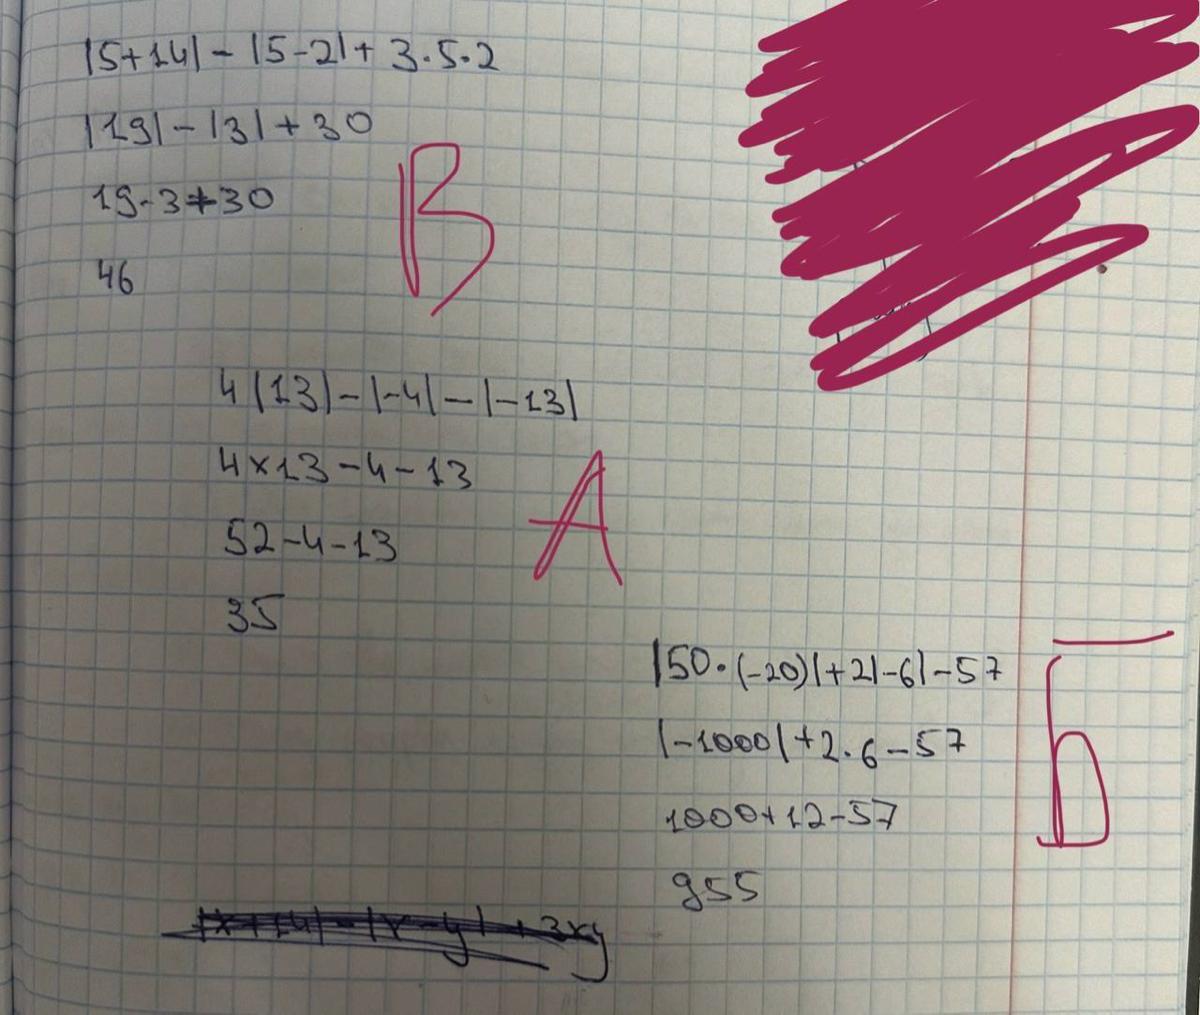 |5+14| - |5-2| + 3·5·2
|19| - |3| + 30
19-3+30
46
В
4|13| - |-4| - |-13|
4×13-4-13
52-4-13
35
А
|50·(-20)|+2|-6|-57
|-1000|+2·6-57
1000+12-57
955
Б
|x+14| - |x-y| + 3xy